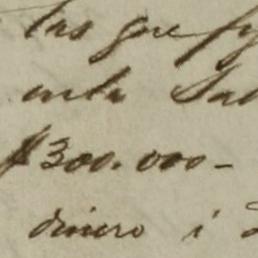 las que
en la
$300.000-
dinero i